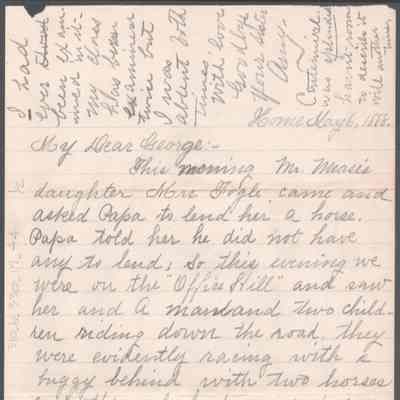 I had
ever
been exam-
ined in it
my class
has been
examined
twice but
I was
absent both
times
with love
Goodbye
your sister
Amy.
Centennial
was splendid
haven't room
to describe it
will another
time.
Home May 6, 1888.
My Dear George:-
This morning Mr. Mease's
daughter Mrs Fogle came and
asked Papa to lend her a horse.
Papa told her he did not have
any to lend; so this evening we
were on the "Office Hill" and saw
her and a man and two child-
ren riding down the road, they
were evidently racing with a
buggy behind with two horses